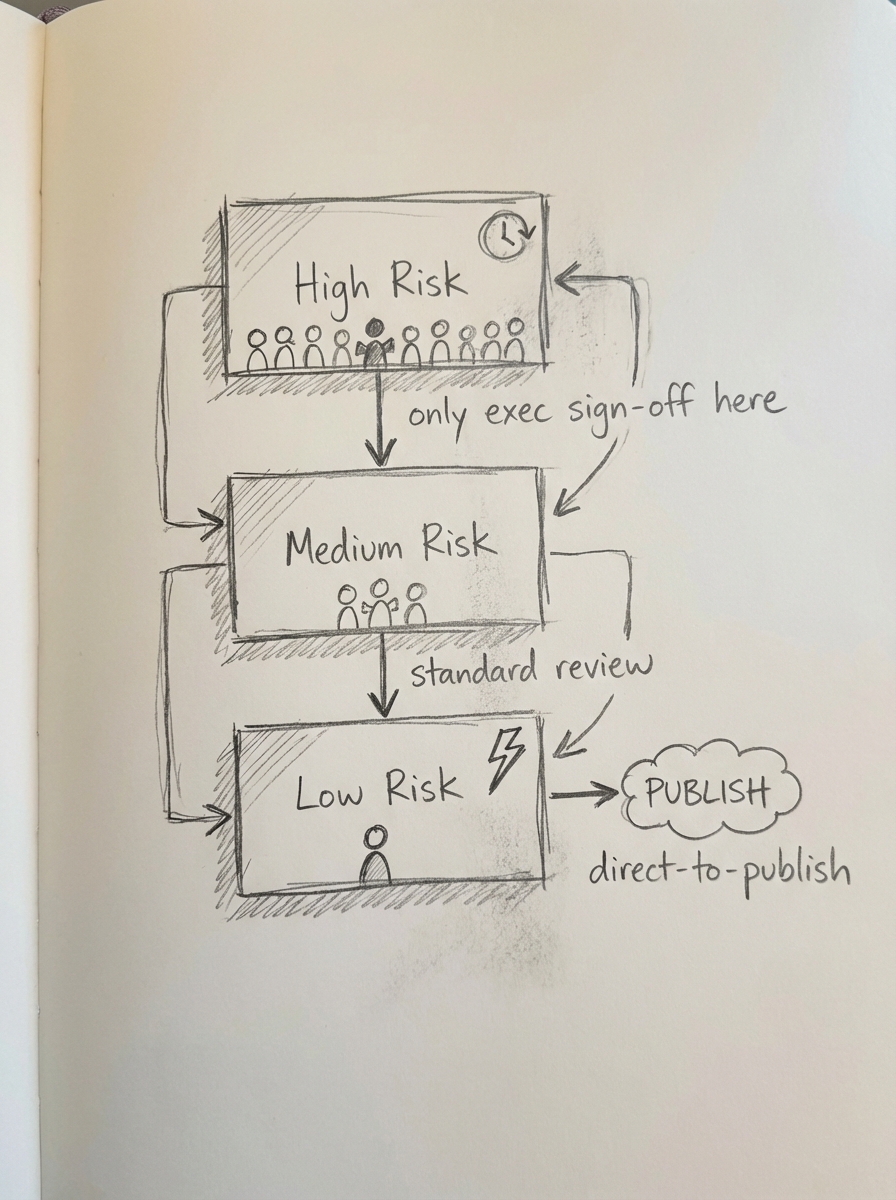 High Risk
only exec sign-off here
Medium Risk
standard review
Low Risk
PUBLISH
direct-to-publish